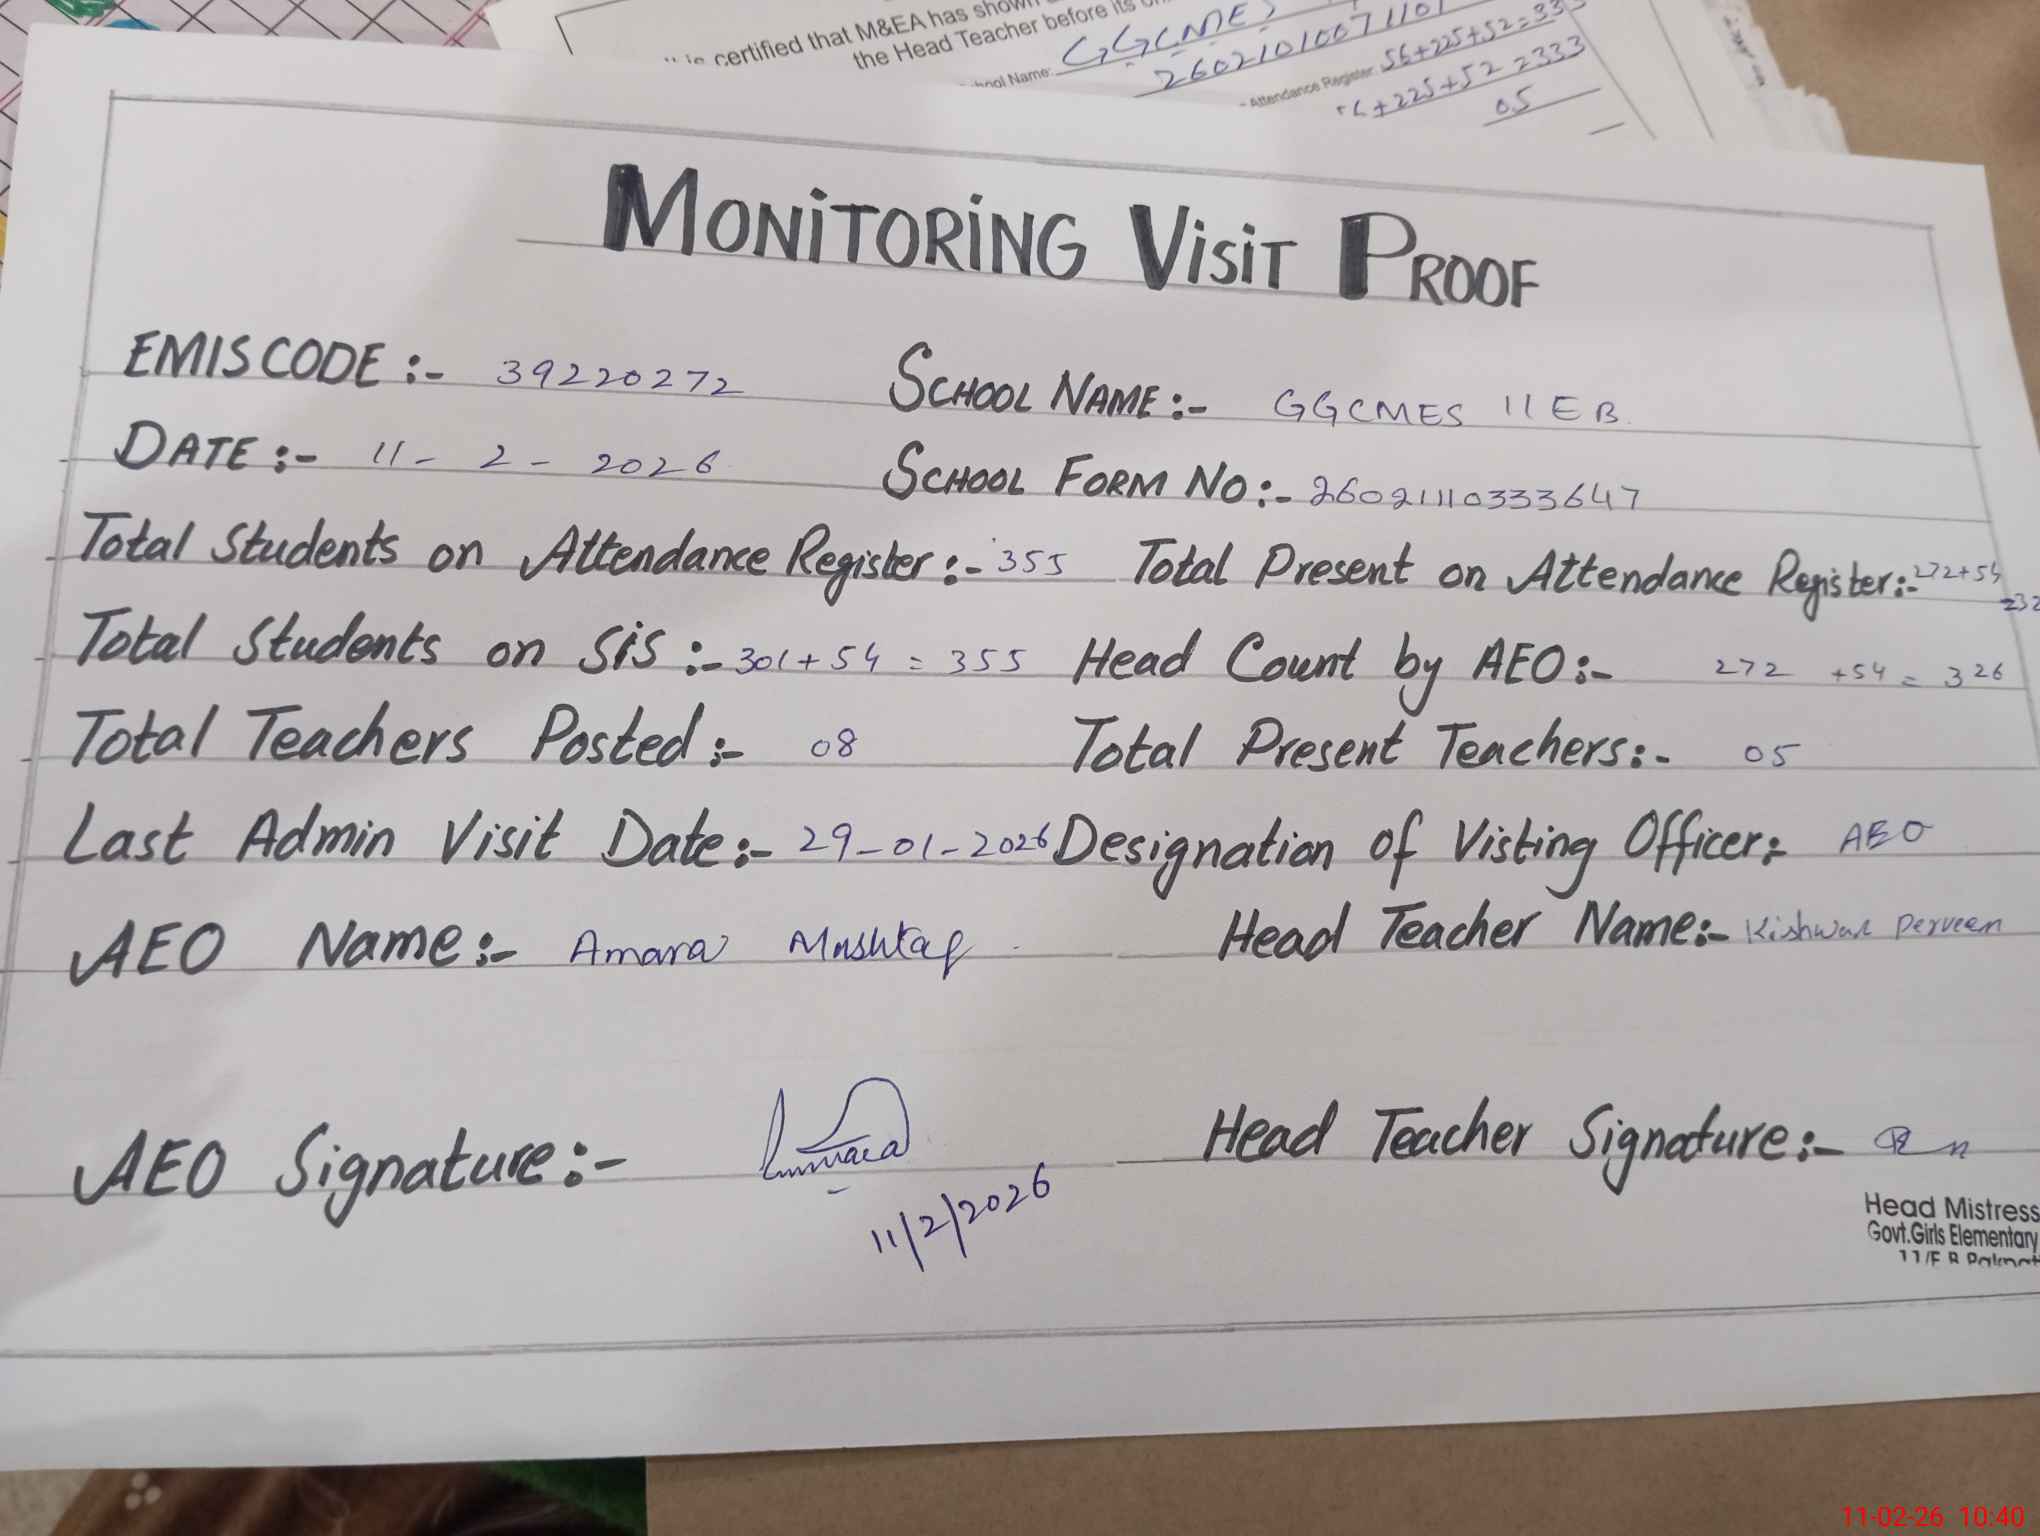 certified that M&EA has shown
the Head Teacher before its
School Name: GGCMES
26021010071101
Attendance Register: 56+225+52=333
56+225+52=333
05
MONITORING VISIT PROOF
EMIS CODE :- 39220272 SCHOOL NAME :- GGCMES 11 EB.
DATE :- 11-2-2026 SCHOOL FORM NO :- 260211103333647
Total Students on Attendance Register :- 355 Total Present on Attendance Register :- 272+54
=32
Total Students on SiS :- 301+54 = 355 Head Count by AEO :- 272 +54 = 326
Total Teachers Posted :- 08 Total Present Teachers :- 05
Last Admin Visit Date :- 29-01-2026 Designation of Visting Officer :- AEO
AEO Name :- Amara Mushtaq Head Teacher Name :- Kishwar Perveen
AEO Signature :- Head Teacher Signature :-
11/2/2026
Head Mistress
Govt.Girls Elementary
11/E B Pakpat
11-02-26 10:40